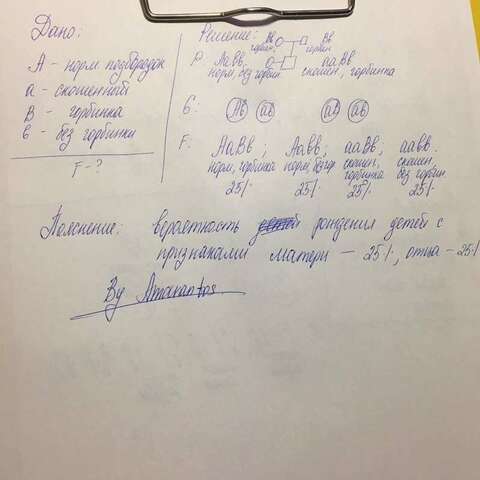 Дано:
А - норм подбородок
а - скошенный
В - горбинка
в - без горбинки
F - ?
Решение:
Вв
горбин.
Вв
горбин
P: Аавв, ааВв
норм, без горбин. скошен., горбинка
G: Ав ав аВ ав
F: АаВв; Аавв; ааВв; аавв.
норм, горбинка норм, без гор скошен. горбинка скошен. без горбин.
25% 25% 25% 25%
Пояснение: вероятность рождения детей с
признаками матери - 25%, отца - 25%
By Amarantos